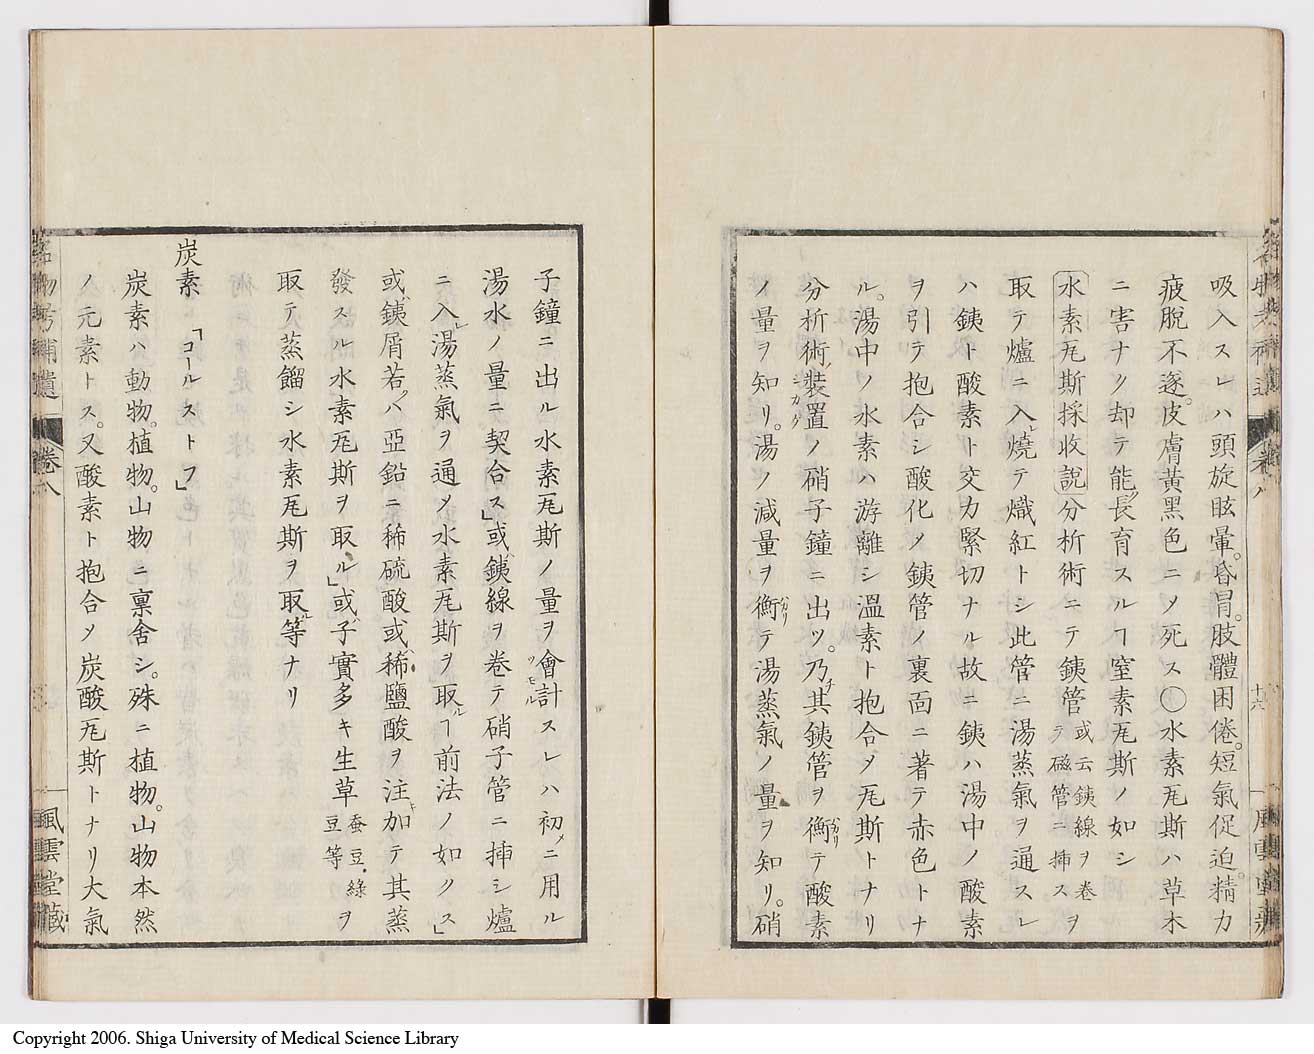 吸入スレハ頭旋眩暈。昏冒。肢體困倦。短氣促迫。精力
疲脫不遂。皮膚黃黑色ニ乄死ス〇水素瓦斯ハ草木
ニ害ナク却テ能ク長育スルヿ窒素瓦斯ノ如シ
水素瓦斯採收說 分析術ニテ銕管 或云銕線ヲ卷テ磁管ニ挿ス ヲ
取テ爐ニ入レ燒テ熾紅トシ此管ニ湯蒸氣ヲ通スレ
ハ銕ト酸素ト交力緊切ナル故ニ銕ハ湯中ノ酸素
ヲ引テ抱合シ酸化乄銕管ノ裏面ニ著テ赤色トナ
ル。湯中ノ水素ハ游離シ溫素ト抱合乄瓦斯トナリ
分析術ノ裝置ノ硝子鐘ニ出ツ。乃チ其銕管ヲ衡テ酸素
ノ量ヲ知リ。湯ノ減量ヲ衡テ湯蒸氣ノ量ヲ知リ。硝
十六
子鐘ニ出ル水素瓦斯ノ量ヲ會計スレハ初メニ用ル
湯水ノ量ニ契合ス」或ハ銕線ヲ卷テ硝子管ニ挿シ爐
ニ入レ湯蒸氣ヲ通乄水素瓦斯ヲ取ルヿ前法ノ如クス」
或ハ銕屑若クハ亞鉛ニ稀硫酸或ハ稀鹽酸ヲ注キ加テ其蒸
發スル水素瓦斯ヲ取ル」或ハ子實多キ生草 蚕豆。綠豆等 ヲ
取テ蒸餾シ水素瓦斯ヲ取ル等ナリ
炭素 「コールストフ」
炭素ハ動物。植物。山物ニ稟舍シ。殊ニ植物。山物本然
ノ元素トス。又酸素ト抱合乄炭酸瓦斯トナリ大氣
卷八
風雲堂藏
Copyright 2006. Shiga University of Medical Science Library